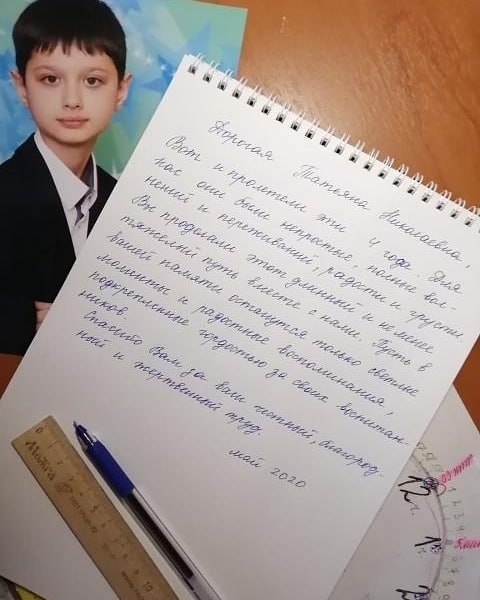 Дорогая Татьяна Николаевна,
Вот и пролетели эти 4 года. Для
нас они были непростые, полные вол-
нений и переживаний, радости и грусти.
Вы проделали этот длинный и не менее
тяжелый путь вместе с нами. Пусть в
вашей памяти останутся только светлые
моменты и радостные воспоминания,
подкрепленные гордостью за своих воспитан-
ников.
Спасибо Вам за ваш честный, благород-
ный и жертвенный труд.
май 2020
0
10
12
1
2